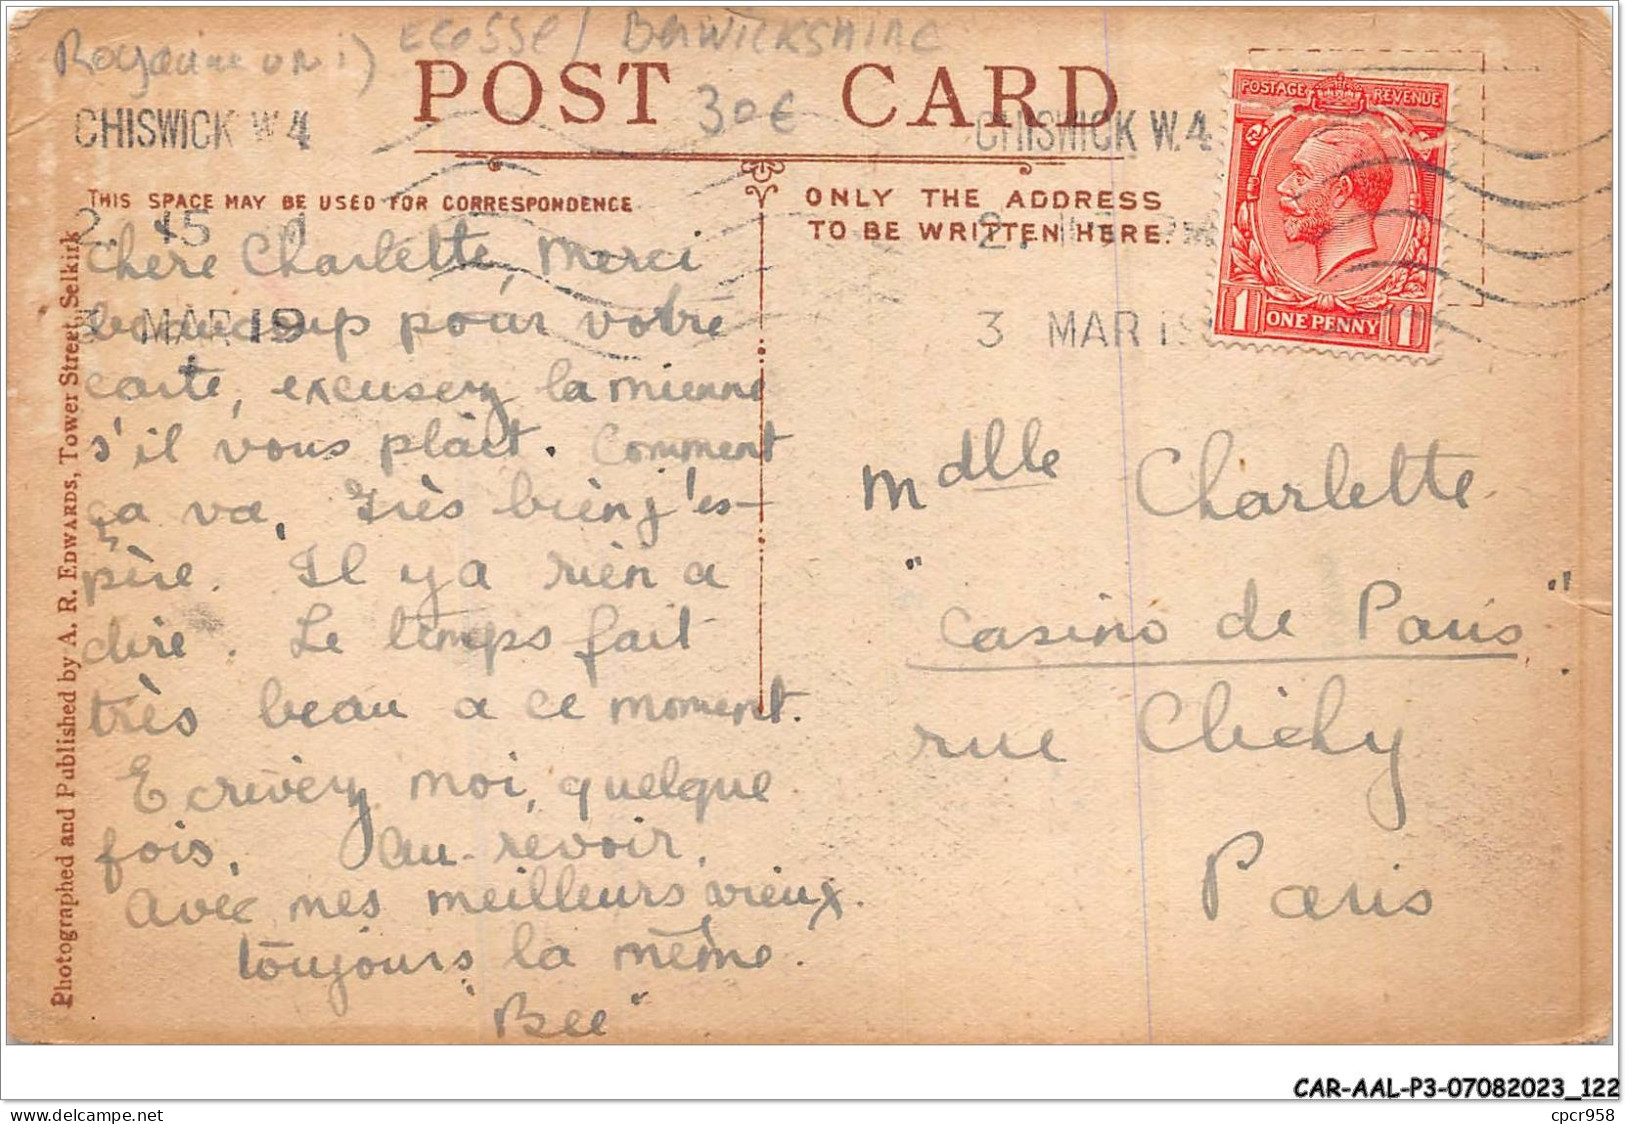 Royaume uni) ECOSSE / BERWICKSHIRE
POST CARD
30€
CHISWICK W 4
CHISWICK W.4
POSTAGE REVENUE
THIS SPACE MAY BE USED FOR CORRESPONDENCE
ONLY THE ADDRESS
TO BE WRITTEN HERE.
2. 15
2.
3 MAR 19
3 MAR 19
1 ONE PENNY 1
Chère Charlette, Merci
beaucoup pour votre
carte, excusez la mienne
s'il vous plâit. Comment
ça va, Très bien j'es-
père. Il y a rien a
dire. Le temps fait
très beau a ce moment.
Ecrivez moi, quelque
fois. Au-revoir,
Avec mes meilleurs vieux.
toujours la même.
"Bee"
Mdlle Charlette
"Casino de Paris"
rue Clichy
Paris
Photographed and Published by A. R. EDWARDS, Tower Street, Selkirk
CAR-AAL-P3-07082023_122
cpcr958